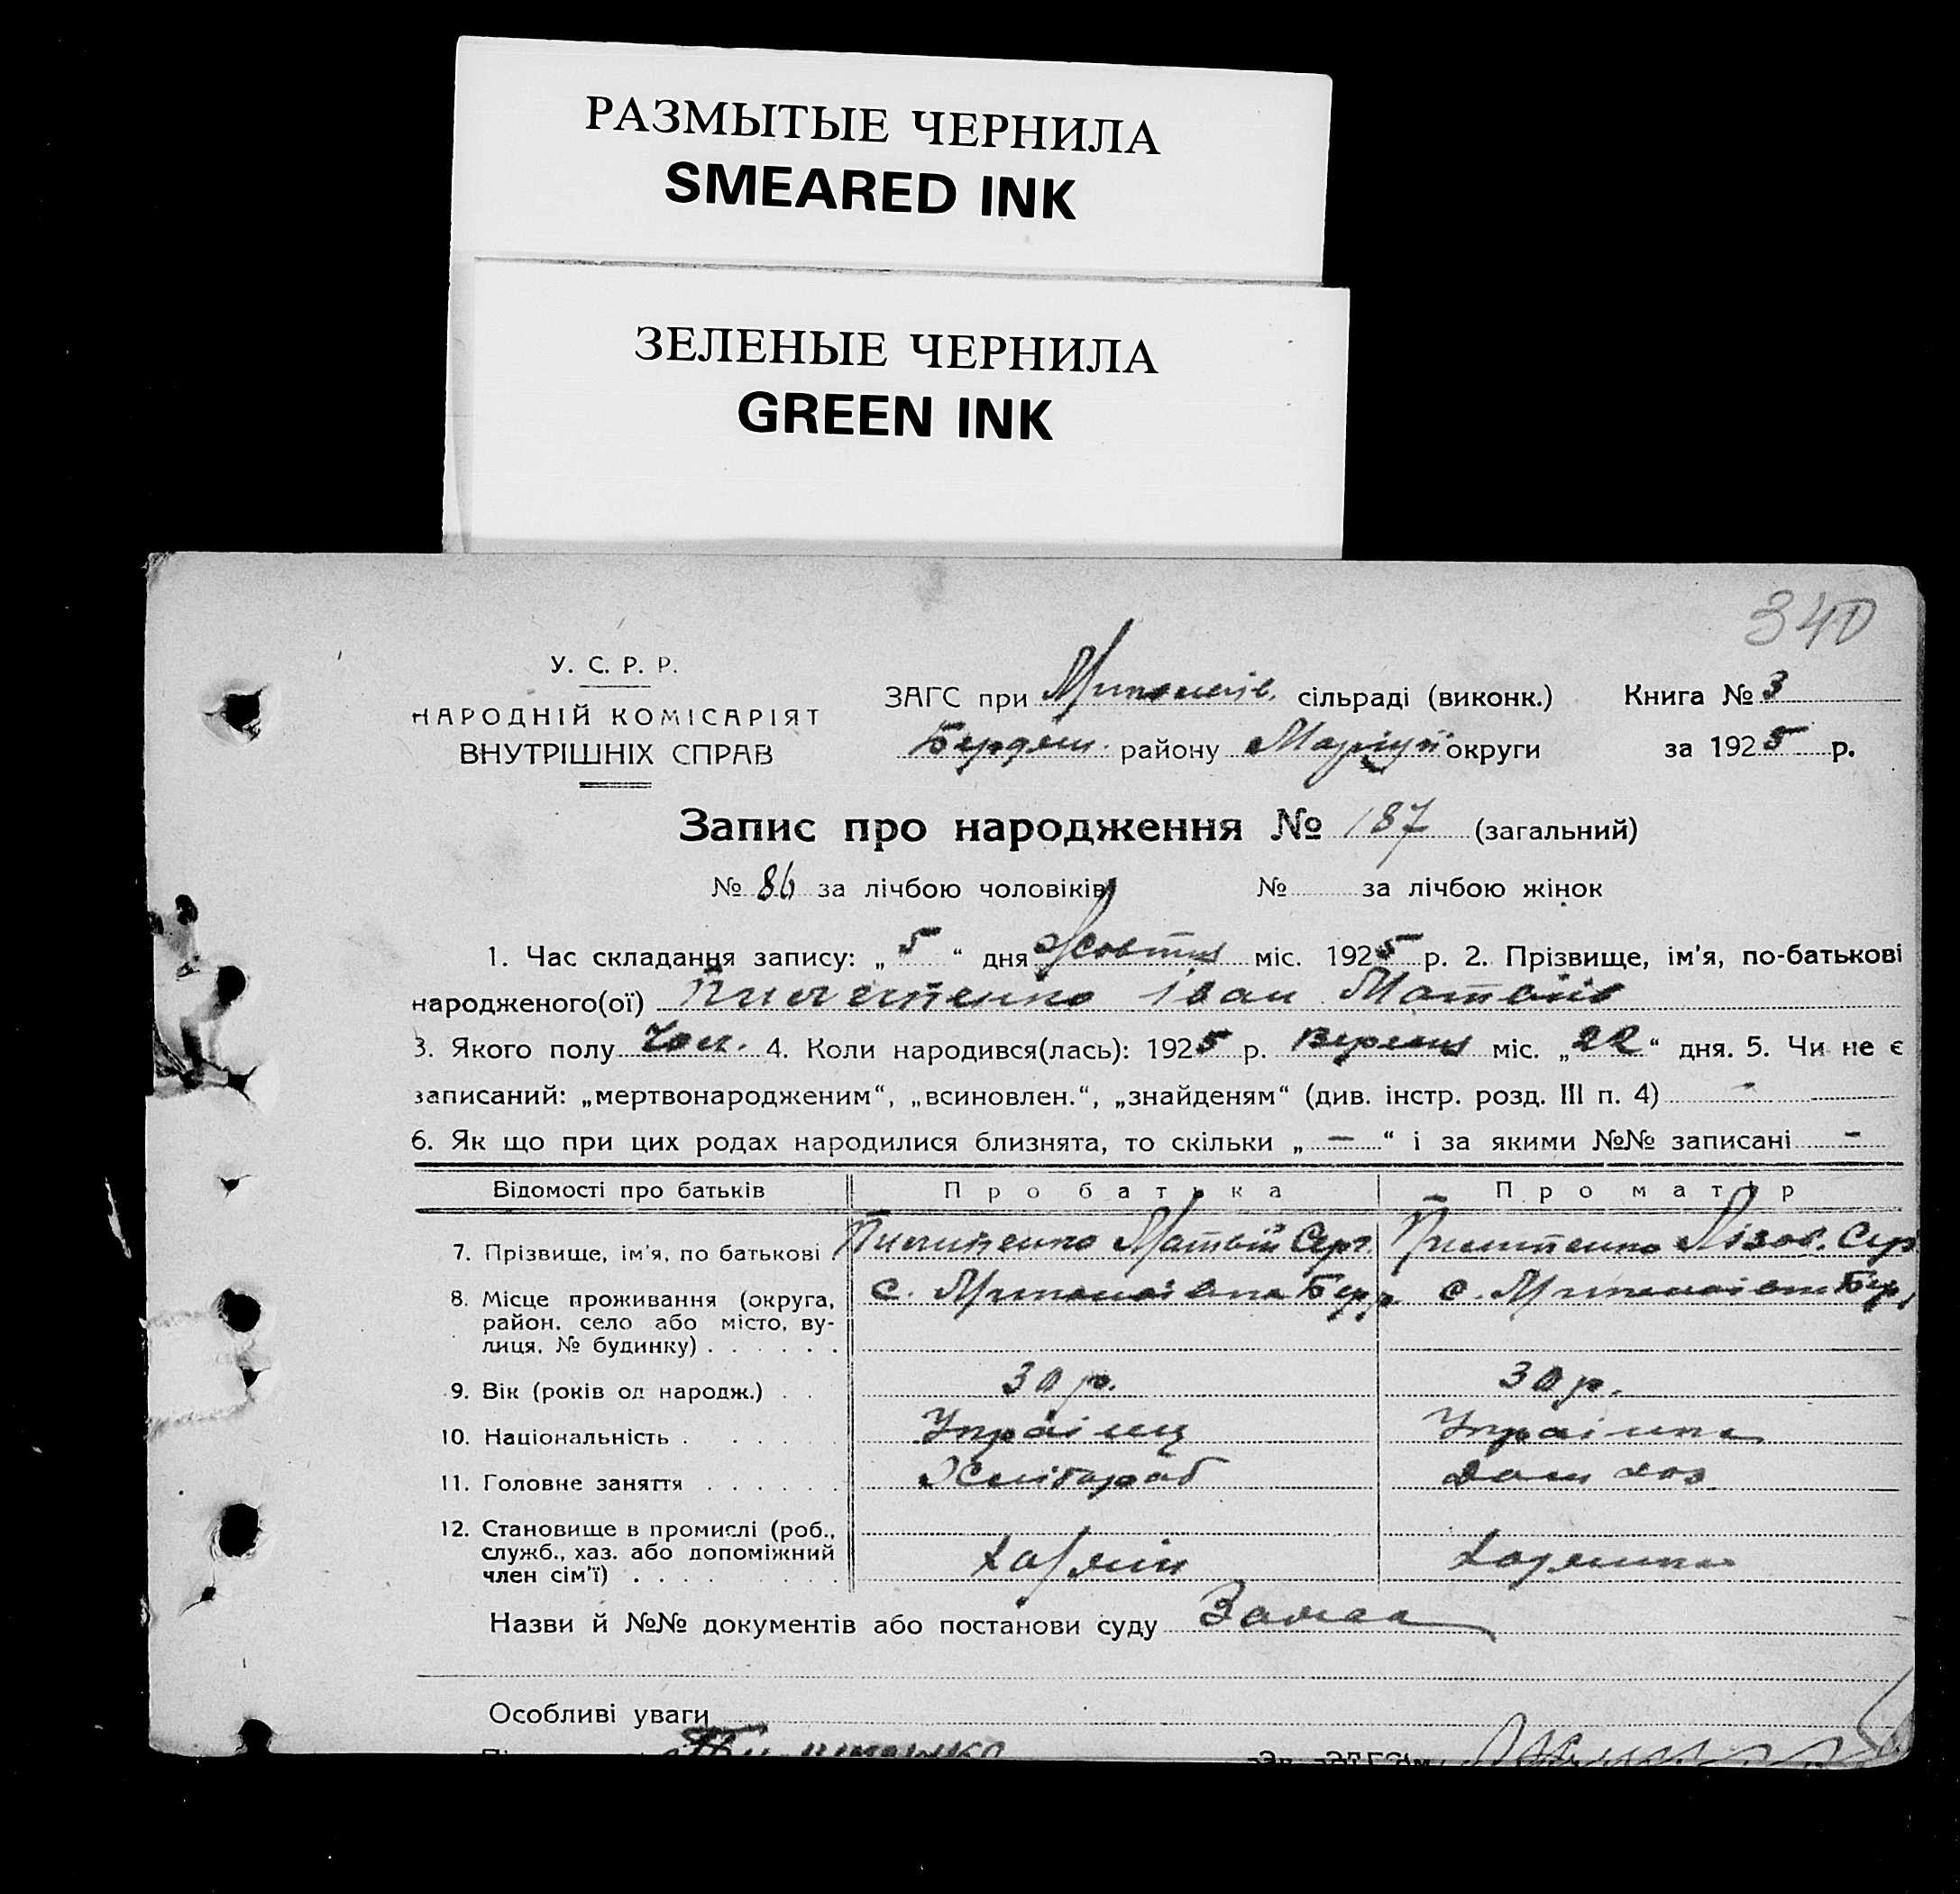 РАЗМЫТЫЕ ЧЕРНИЛА
SMEARED INK
ЗЕЛЕНЫЕ ЧЕРНИЛА
GREEN INK
340
У. С. Р. Р.
НАРОДНІЙ КОМІСАРІЯТ
ВНУТРІШНІХ СПРАВ
ЗАГС при сільраді (виконк.) Книга № 3
Бердян. району Маріуп округи за 1925 р.
Запис про народження № 187 (загальний)
№ 86 за лічбою чоловіків № за лічбою жінок
1. Час складання запису: „ 5 “ дня Жовтня міс. 1925 р. 2. Прізвище, ім'я, по-батькові
народженого(ої) Пилипенко Іван Матвіїв
3. Якого полу Чол. 4. Коли народився(лась): 1925 р. Вересня міс. „22“ дня. 5. Чи не є
записаний: „мертвонародженим“, „всиновлен.“, „знайденям“ (див. інстр. розд. III п. 4) -
6. Як що при цих родах народилися близнята, то скільки „ — “ і за якими №№ записані -
Відомості про батьків Про батька Про матір
7. Прізвище, ім'я, по батькові . Пилипенко Матвій Серг. Пилипенко Лізав. Сер
8. Місце проживання (округа, с. Бер с. Бер
район, село або місто, ву-
лиця, № будинку) . . . . . .
9. Вік (років од народж.) . . 30 р. 30 р.
10. Національність . . . . . Українц Українка
11. Головне заняття . . . . . . Хлібороб Дом хоз
12. Становище в промислі (роб.,
служб., хаз. або допоміжний Хазяїн Хазяйка
член сім'ї) . . . . . . . . .
Назви й №№ документів або постанови суду Заява
Особливі уваги